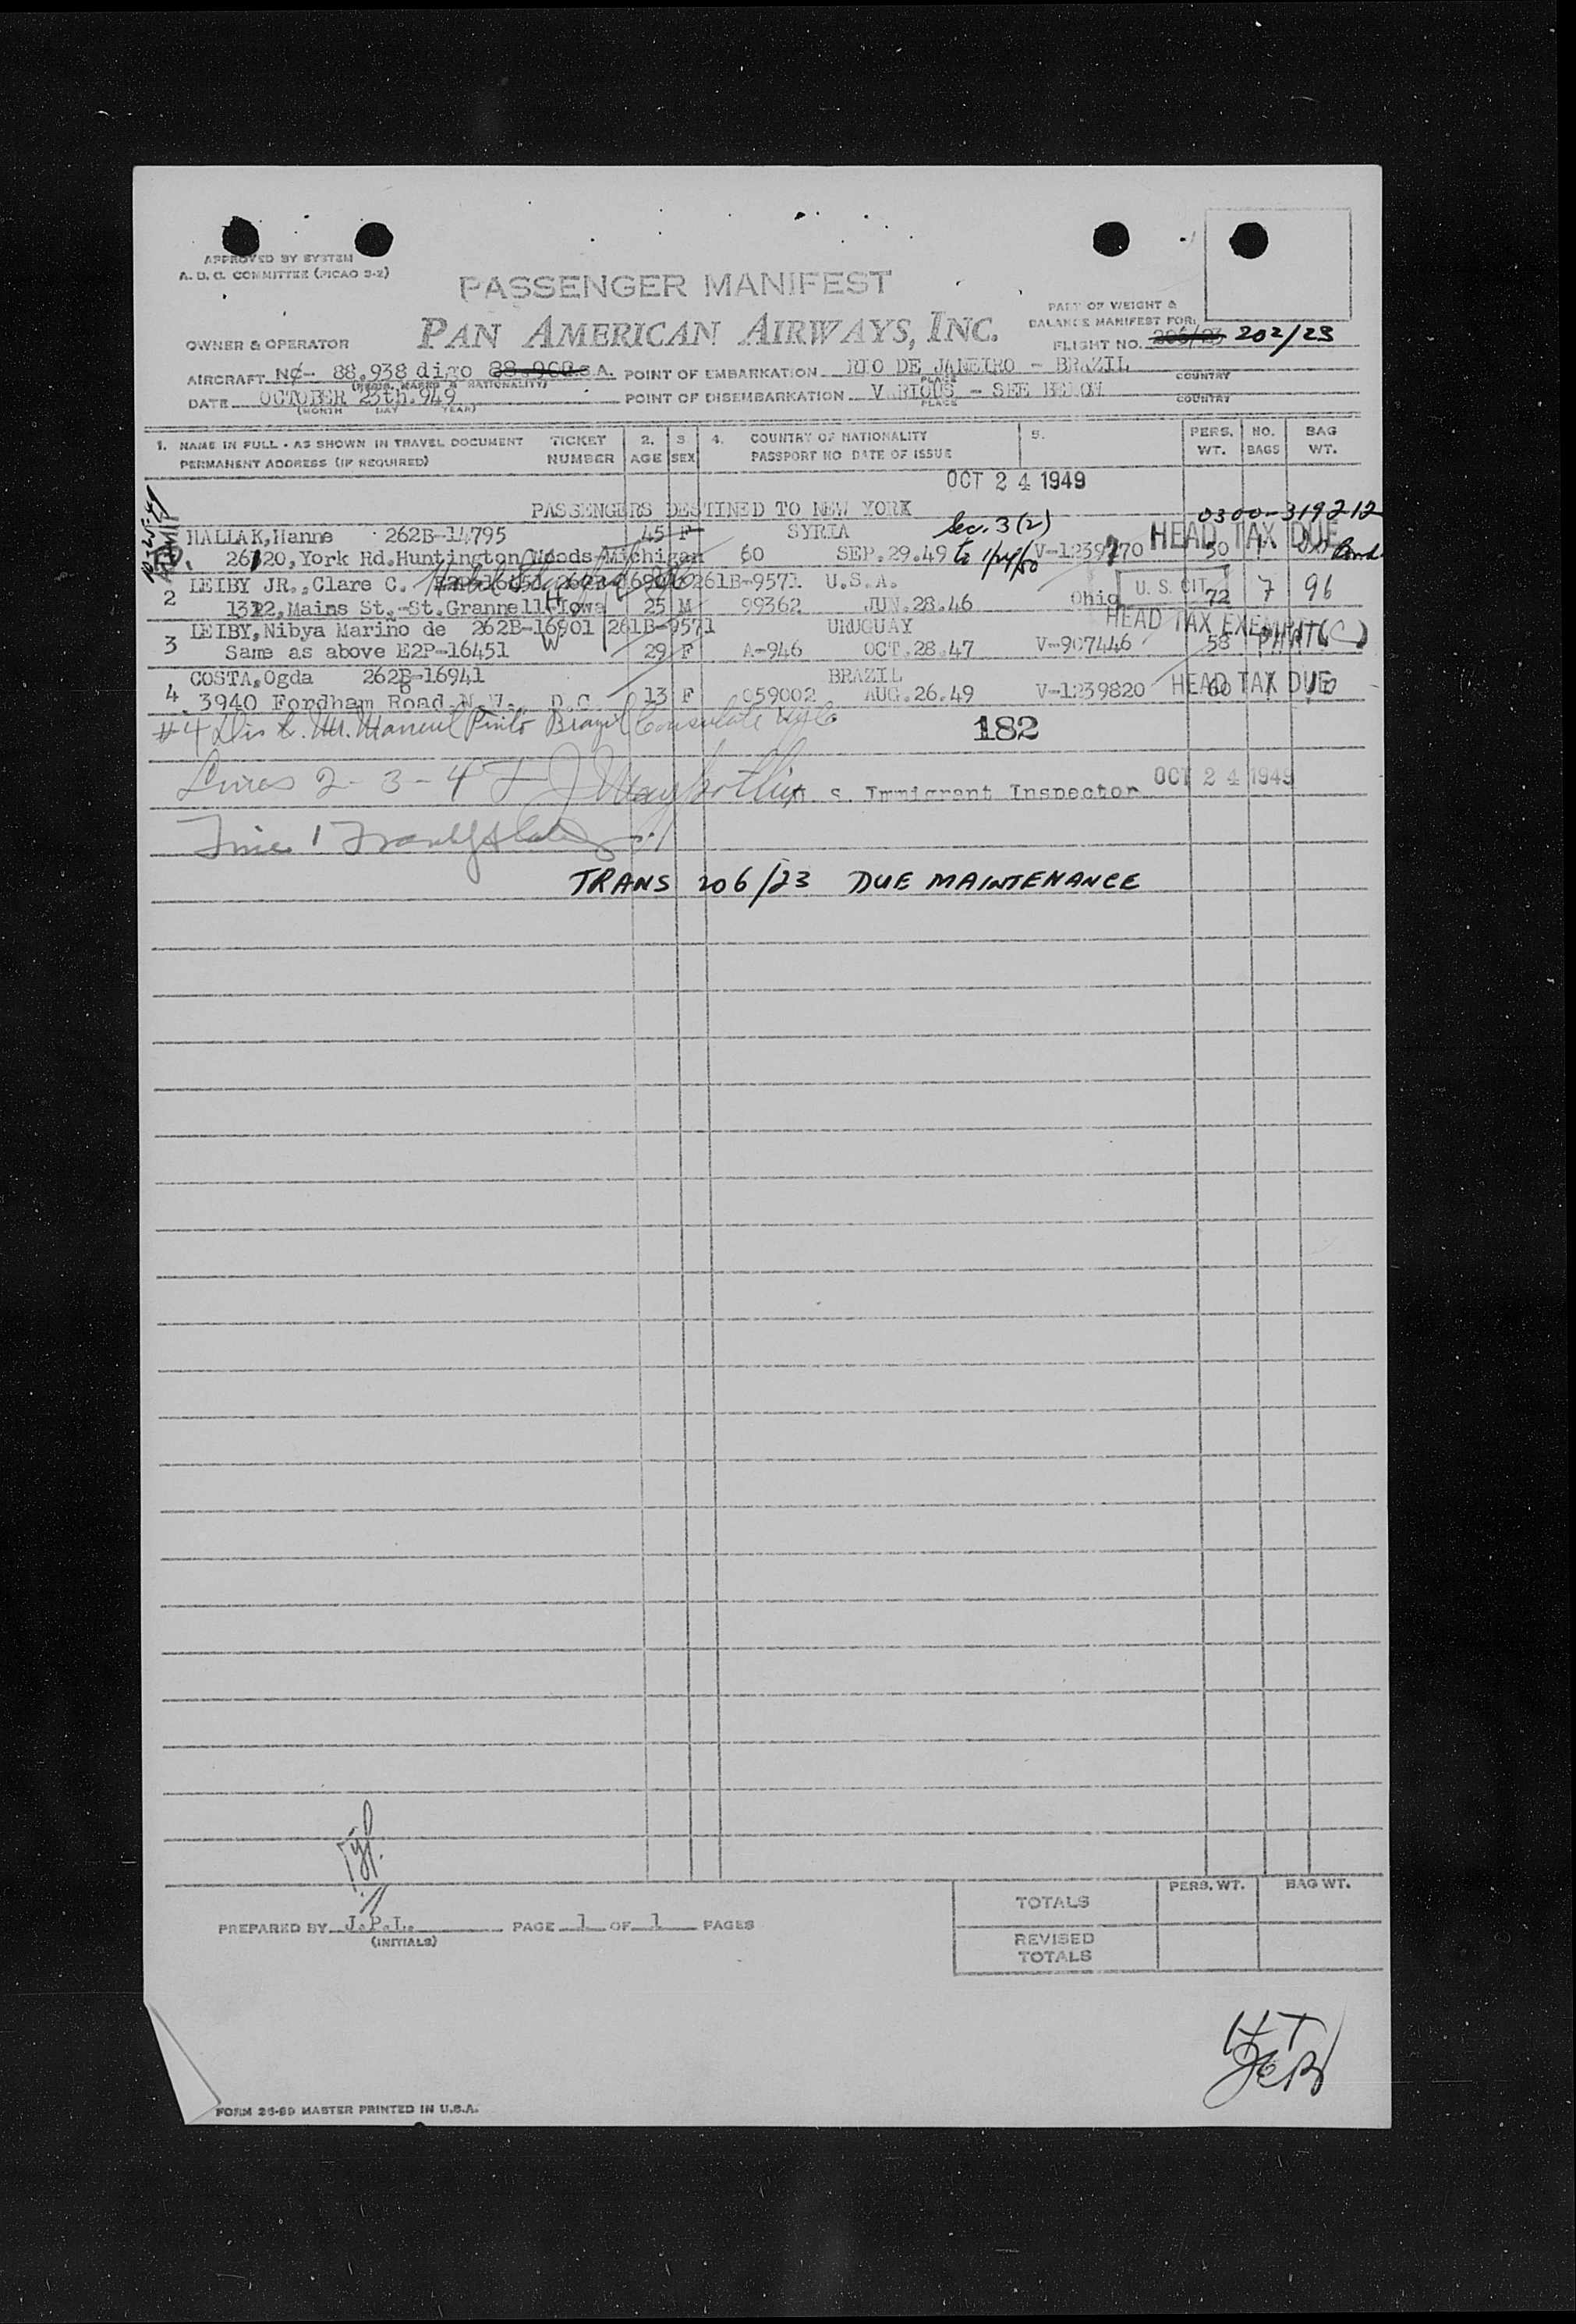 APPROVED BY SYSTEM
A. D. C. COMMITTEE (PICAO 5-2)
PASSENGER MANIFEST
PART OF WEIGHT &
BALANCE MANIFEST FOR:
OWNER & OPERATOR
PAN AMERICAN AIRWAYS, INC.
FLIGHT NO. 206/23 202/23
AIRCRAFT NC- 88.938 digo POINT OF EMBARKATION RIO DE JANEIRO - BRAZIL
(REGIS. MARKS & NATIONALITY) PLACE COUNTRY
DATE OCTOBER 23th.949 POINT OF DISEMBARKATION V RIOUS - SEE BELOW
(MONTH DAY YEAR) PLACE COUNTRY
1. NAME IN FULL - AS SHOWN IN TRAVEL DOCUMENT TICKET 2. 3. 4. COUNTRY OF NATIONALITY 5. PERS. NO. BAG
PERMANENT ADDRESS (IF REQUIRED) NUMBER AGE SEX PASSPORT NO DATE OF ISSUE WT. BAGS WT.
OCT 24 1949
PASSENGERS DESTINED TO NEW YORK
0300-319212
HALLAK,Hanne 262B-14795 45 F SYRIA Sec. 3(2) HEAD TAX DUE
26120,York Rd.Huntington Woods Michigan 60 SEP.29.49 to 1/24/50 V-1239770 50 1
2 LEIBY JR.,Clare C. 261B-9571 U.S.A. U. S. CIT.
1312,Mains St.-St.Grannell-Iowa 25 M 99362 JUN.28.46 Ohio 72 7 96
HEAD TAX EXEMPT
3 LEIBY,Nibya Mariño de 262B-16901 261B-9571 URUGUAY
Same as above E2P-16451 W 29 F A-946 OCT.28.47 V-907446 58
COSTA,Ogda 262B-16941 BRAZIL
4. 3940 Fordham Road.N.W., D.C. 13 F 059002 AUG.26.49 V-1239820 60 HEAD TAX DUE
#4 Dis to Mr. Manuel Pinto Brazil Consulate NYC
182
Lines 2-3-4 S. Immigrant Inspector OCT 24 1949
Line 1
TRANS 206/23 DUE MAINTENANCE
PERS. WT. BAG WT.
TOTALS
PREPARED BY J.P.L. PAGE 1 OF 1 PAGES
(INITIALS)
REVISED
TOTALS
FORM 26-89 MASTER PRINTED IN U.S.A.